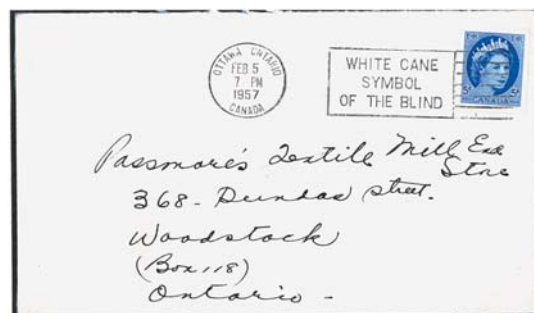 OTTAWA ONTARIO
FEB 5
7 PM
1957
CANADA
WHITE CANE
SYMBOL
OF THE BLIND
5¢ 
CANADA
Passmore's Textile Mill End
Store
368 - Dundas Street.
Woodstock
(Box 118)
Ontario -